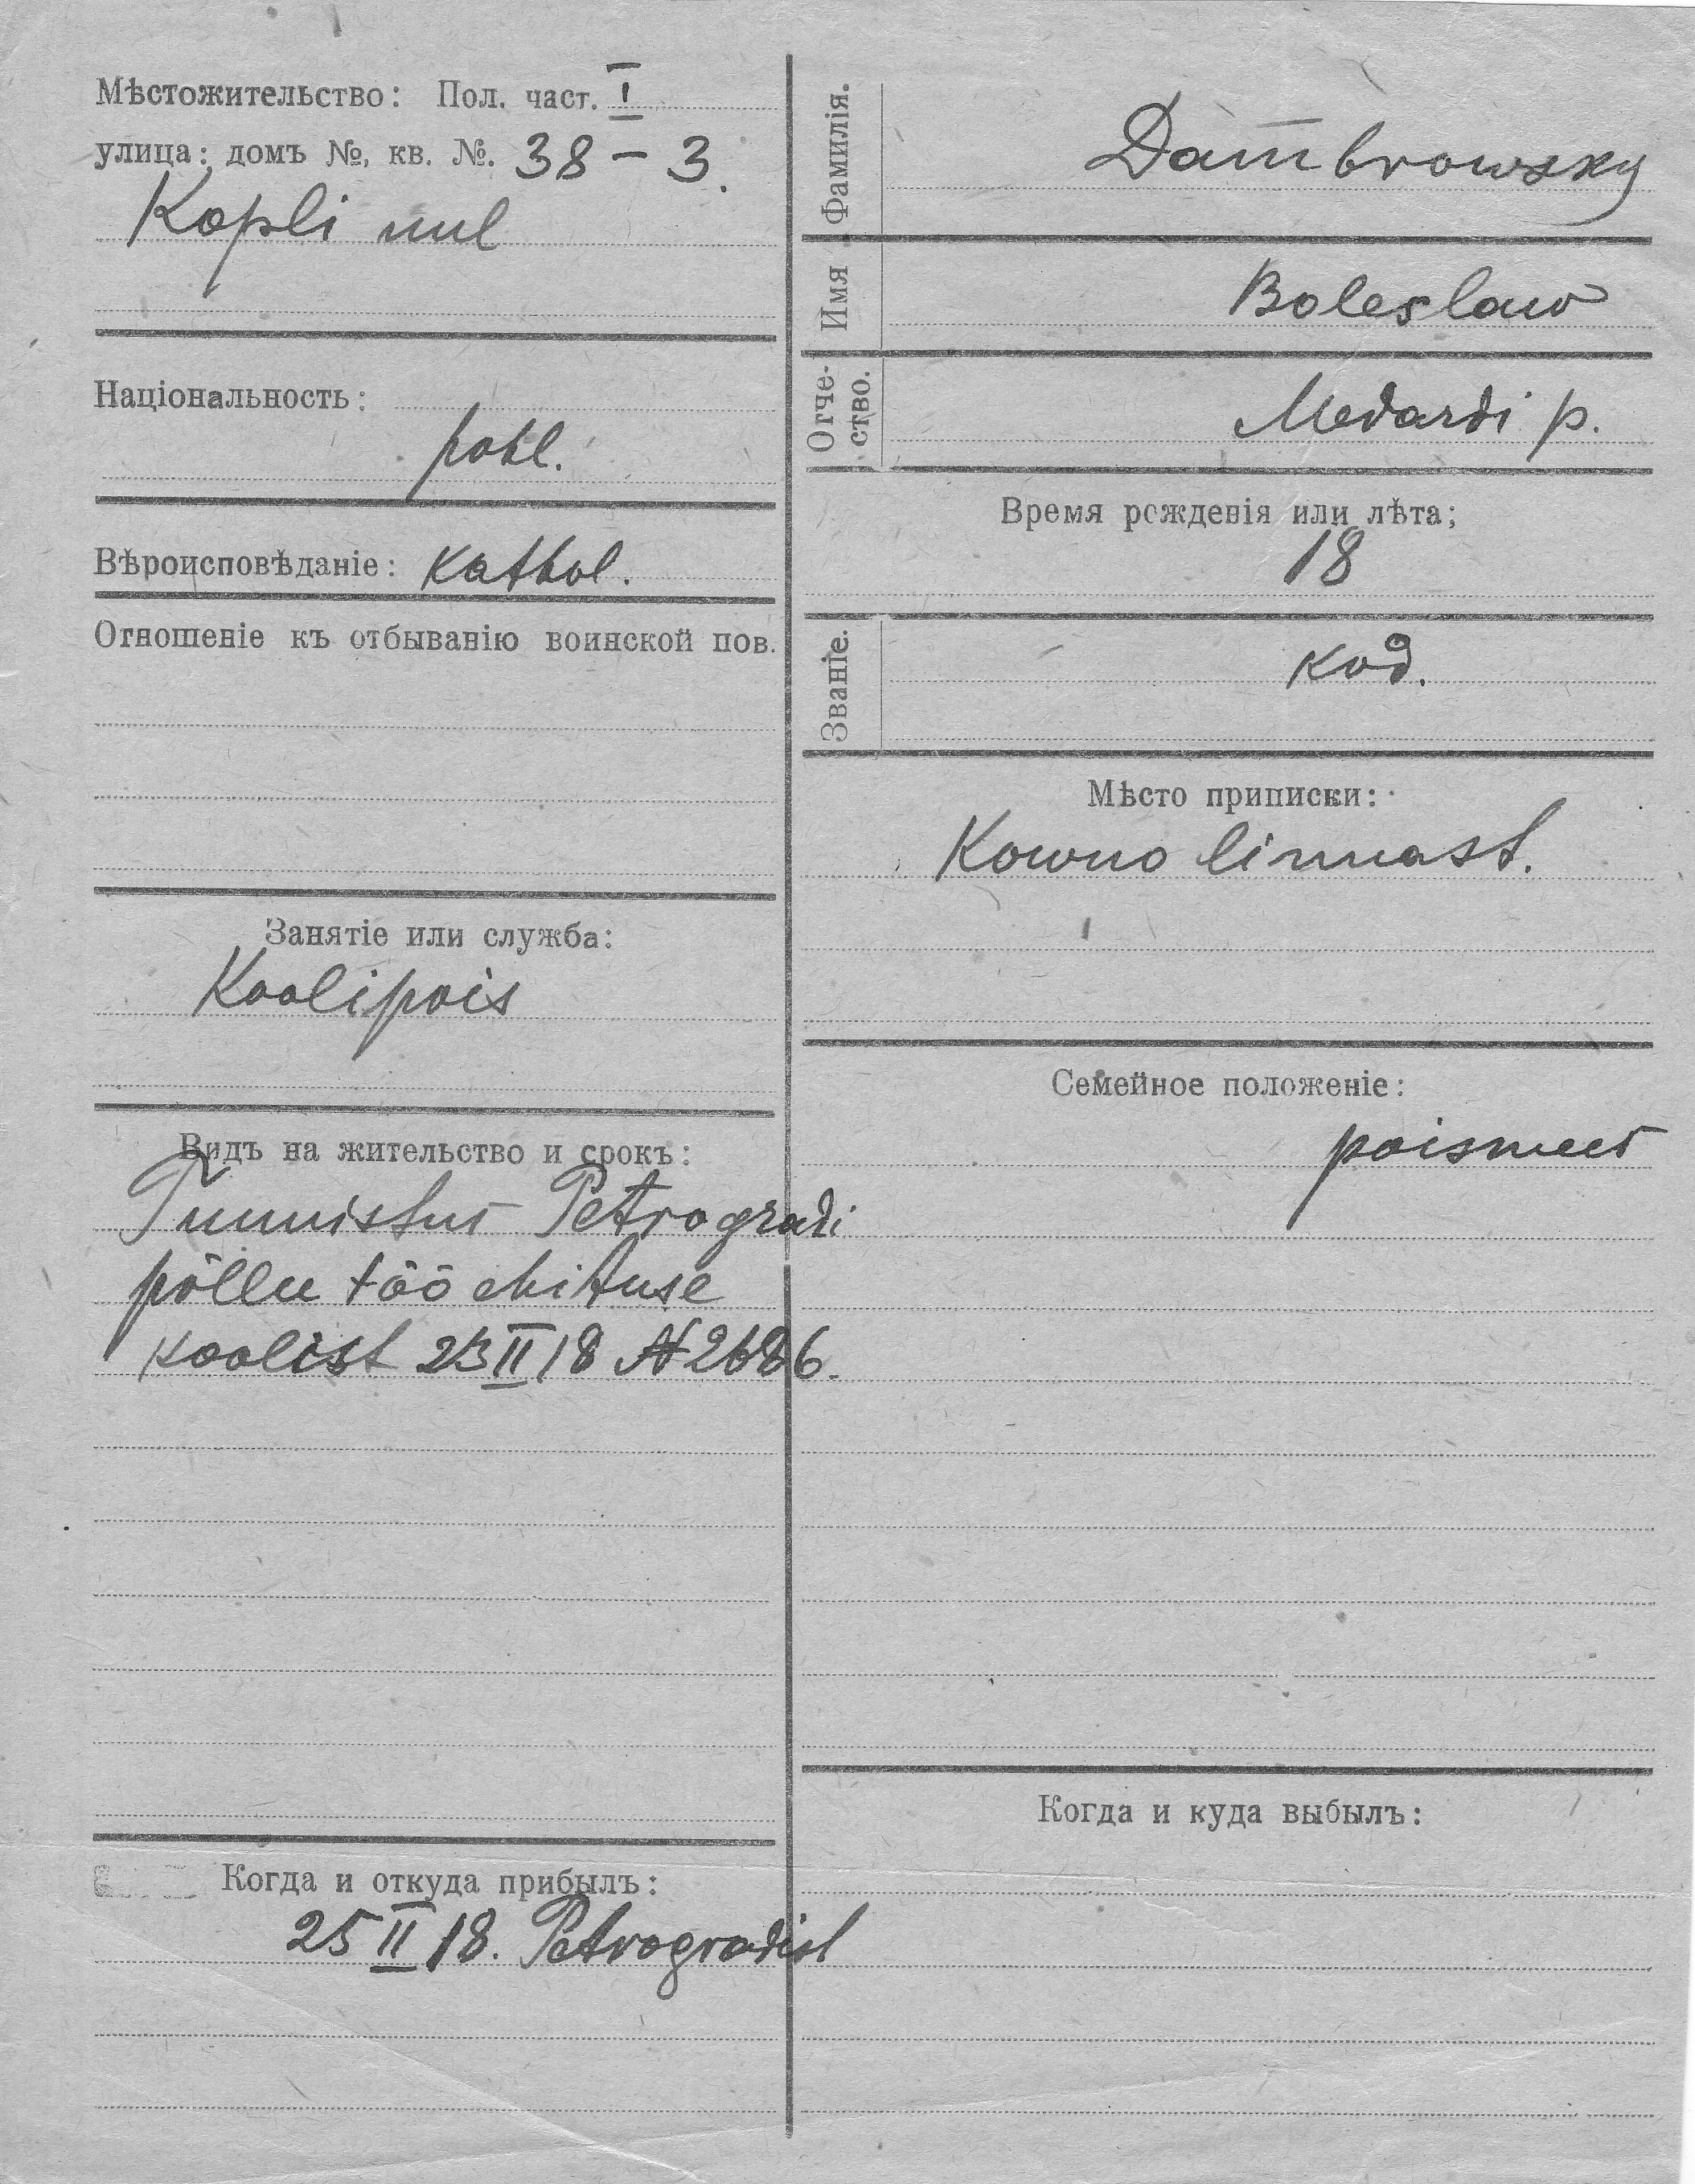 Мѣстожительство: Пол. част. I
улица: домъ №, кв. №. 38 – 3.
Kopli uul
Національность:
pohl.
Вѣроисповѣданіе: kathol.
Отношеніе къ отбыванію воинской пов.
Занятіе или служба:
Koolipois
Видъ на жительство и срокъ:
Tunnistus Petrogradi
põllu töö ehituse
koolist 23 II 18 № 2686.
Когда и откуда прибылъ:
25 II 18. Petrogradist
Фамилія. Dambrowsky
Имя Boleslaw
Отче-
ство. Medardi p.
Время рожденія или лѣта;
18
Званіе. kod.
Мѣсто приписки:
Kowno linnast.
Семейное положеніе:
poismees
Когда и куда выбылъ: